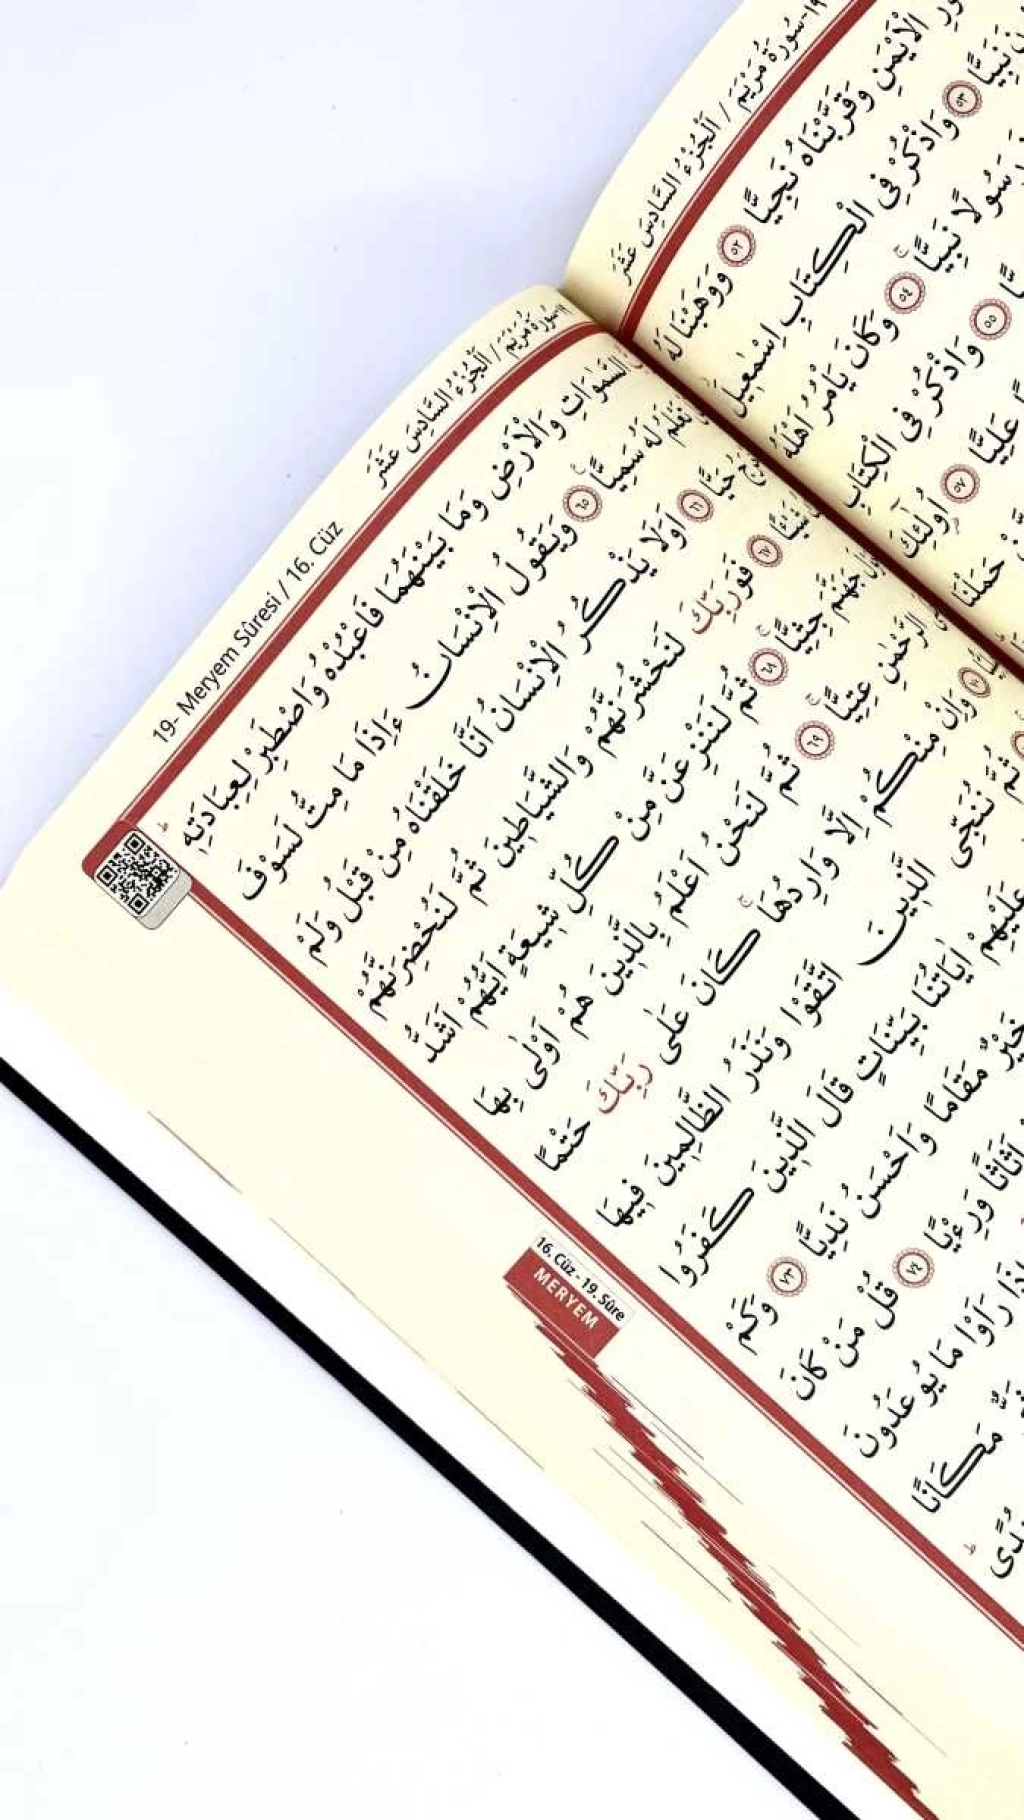 ١٩-سُورَةُ مَرْيَمَ / اَلْجُزْءُ السَّادِسَ عَشَرَ
الْاَيْمَنِ وَقَرَّبْنَاهُ نَجِيًّا ٥٢ وَوَهَبْنَا لَهُ
نَبِيًّا ٥٣ وَاذْكُرْ فِى الْكِتَابِ اِسْمٰعِيلَ
رَسُولًا نَبِيًّا ٥٤ وَكَانَ يَاْمُرُ اَهْلَهُ
٥٥ وَاذْكُرْ فِى الْكِتَابِ
عَلِيًّا ٥٧ اُولٰٓئِكَ
حَمَلْنَا
سُورَةُ مَرْيَمَ / اَلْجُزْءُ السَّادِسَ عَشَرَ
19- Meryem Sûresi / 16. Cüz
السَّمٰوَاتِ وَالْاَرْضِ وَمَا بَيْنَهُمَا فَاعْبُدْهُ وَاصْطَبِرْ لِعِبَادَتِهِ
تَعْلَمُ لَهُ سَمِيًّا ٦٥ وَيَقُولُ الْاِنْسَانُ ءَاِذَا مَا مِتُّ لَسَوْفَ
حَيًّا ٦٦ اَوَلَا يَذْكُرُ الْاِنْسَانُ اَنَّا خَلَقْنَاهُ مِنْ قَبْلُ وَلَمْ
شَيْـًٔا ٦٧ فَوَرَبِّكَ لَنَحْشُرَنَّهُمْ وَالشَّيَاطِينَ ثُمَّ لَنُحْضِرَنَّهُمْ
جَهَنَّمَ جِثِيًّا ٦٨ ثُمَّ لَنَنْزِعَنَّ مِنْ كُلِّ شِيعَةٍ اَيُّهُمْ اَشَدُّ
الرَّحْمٰنِ عِتِيًّا ٦٩ ثُمَّ لَنَحْنُ اَعْلَمُ بِالَّذِينَ هُمْ اَوْلٰى بِهَا
وَاِنْ مِنْكُمْ اِلَّا وَارِدُهَا كَانَ عَلٰى رَبِّكَ حَتْمًا
ثُمَّ نُنَجِّى الَّذِينَ اتَّقَوْا وَنَذَرُ الظَّالِمِينَ فِيهَا
عَلَيْهِمْ اٰيَاتُنَا بَيِّنَاتٍ قَالَ الَّذِينَ كَفَرُوا
خَيْرٌ مَقَامًا وَاَحْسَنُ نَدِيًّا ٧٣ وَكَمْ
اَثَاثًا وَرِءْيًا ٧٤ قُلْ مَنْ كَانَ
اِذَا رَاَوْا مَا يُوعَدُونَ
مَكَانًا
16. Cüz - 19. Sûre
MERYEM